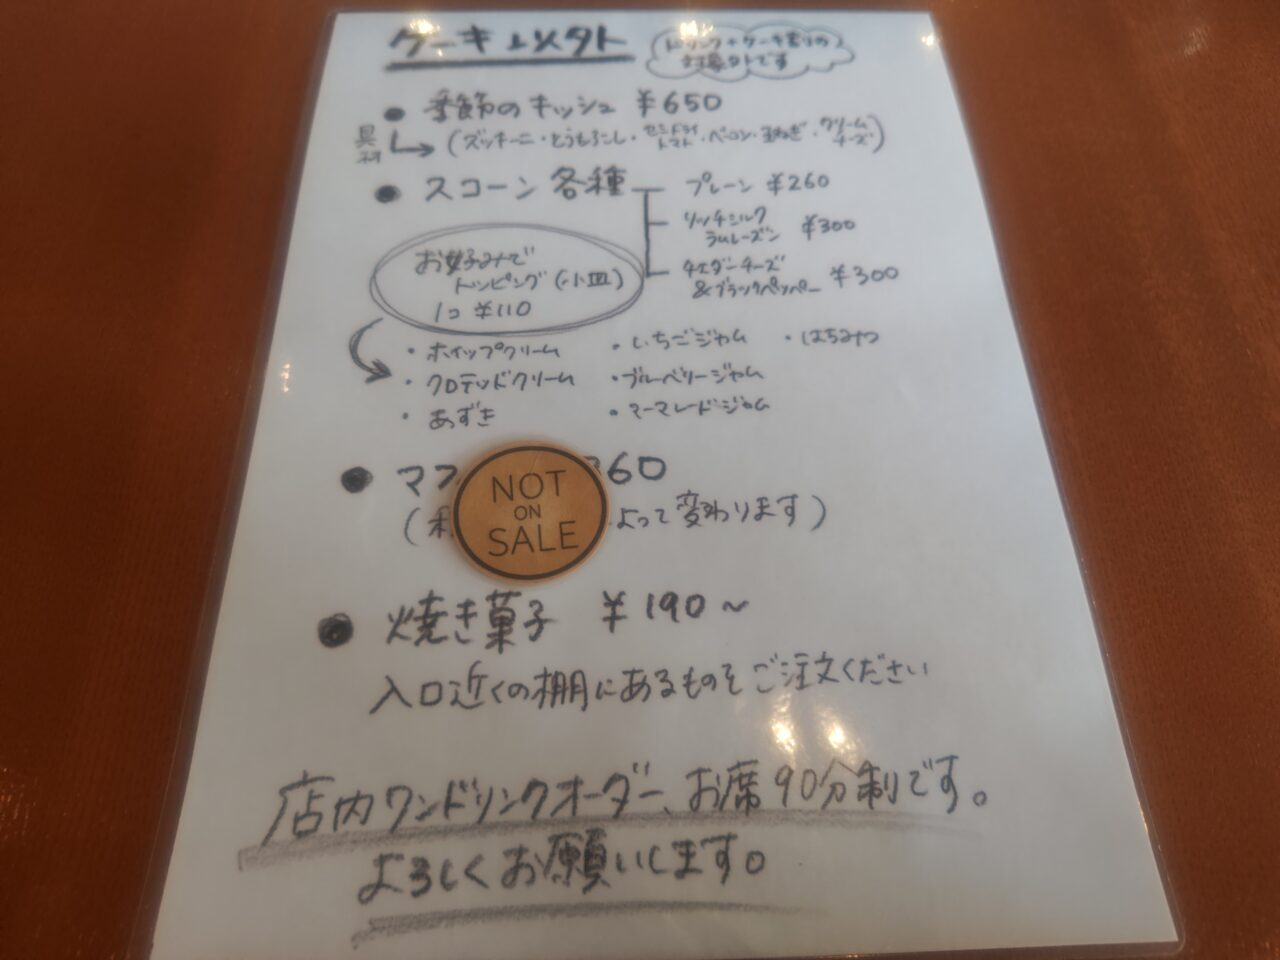 ケーキ以外
ドリンク+ケーキ割りの
対象外です
● 季節のキッシュ ¥650
具材
(ズッキーニ・とうもろこし・セミドライトマト・ベーコン・玉ねぎ・クリームチーズ)
● スコーン 各種
プレーン ¥260
リッチミルク
ラムレーズン ¥300
チェダーチーズ
&ブラックペッパー ¥300
お好みで
トッピング(小皿)
1コ ¥110
・ホイップクリーム ・いちごジャム ・はちみつ
・クロテッドクリーム ・ブルーベリージャム
・あずき ・マーマレードジャム
● マフ 360
NOT
ON
SALE
よって変わります)
● 焼き菓子 ¥190~
入口近くの棚にあるものをご注文ください
店内ワンドリンクオーダー、お席90分制です。
よろしくお願いします。